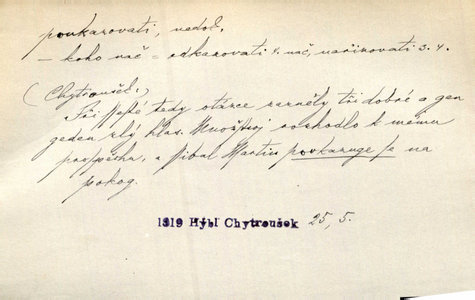 poukazovati, nedok.
– koho nač = odkazovati 4. nač, nařizovati 3. 4.
(Chytroušek.)
Při Mojské tedy otázce zazněly tři dobré a gen
geden zlý hlas. Množství rozhodlo k mému
prospěchu, a Pihal Martin poukazuge se na
pokog.
1819 Hýbl Chytroušek 25, 5.